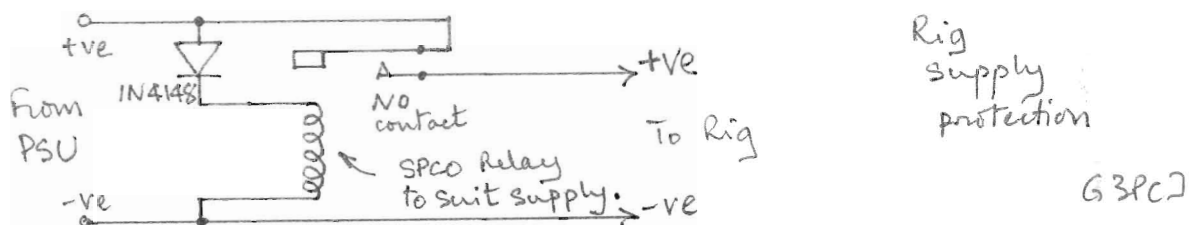 +ve
IN4148
From
PSU
-ve
NO
contact
SPCO Relay
to suit supply.
+ve
To Rig
-ve
Rig
supply
protection
G3PCJ